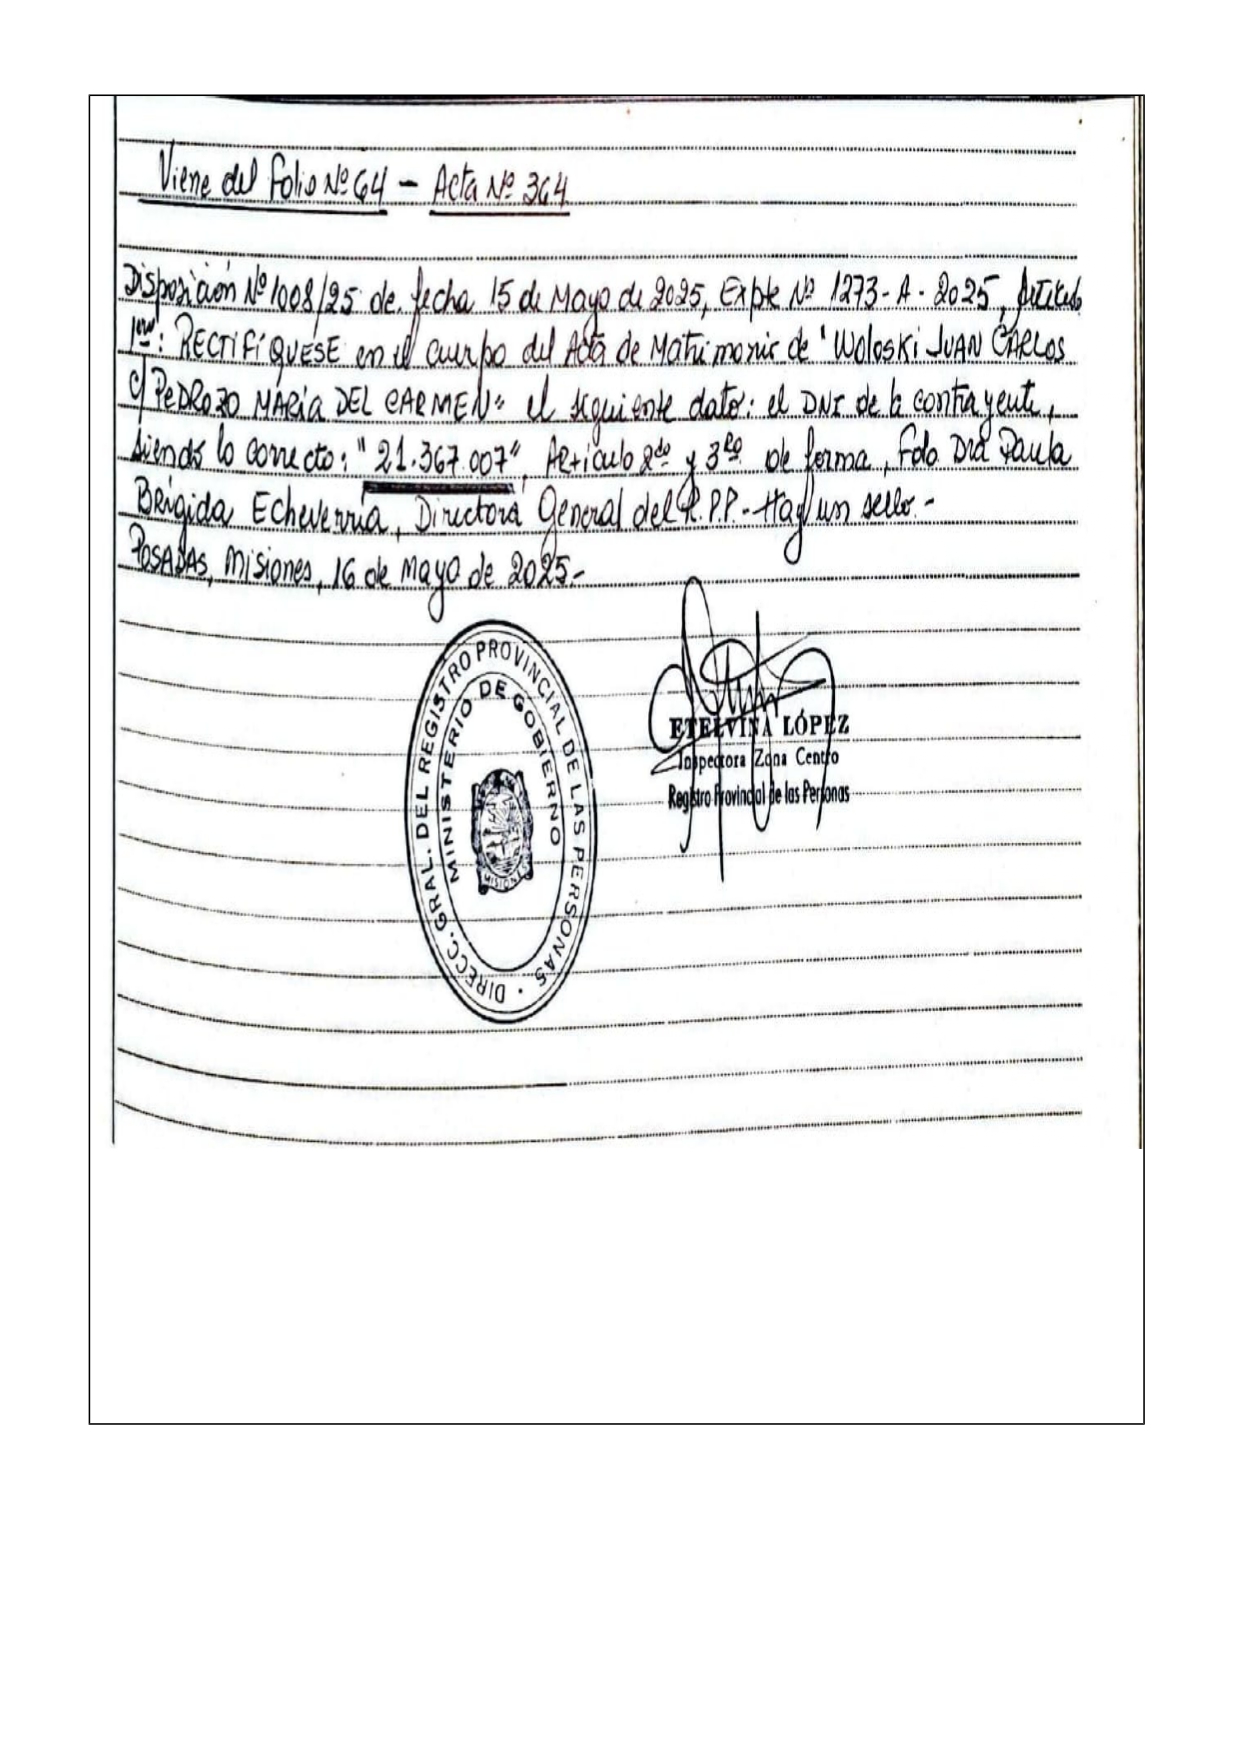 Viene del Folio Nº 64 - Acta Nº 364
Disposición Nº 1008/25 de fecha 15 de Mayo de 2025, Expte Nº 1273-A-2025, Artículo
1ero: RECTIFÍQUESE en el cuerpo del Acta de Matrimonio de "WOLOSKI JUAN CARLOS
c/ PEDROZO MARÍA DEL CARMEN" el siguiente dato: el DNI de la contrayente,
siendo lo correcto: "21.367.007", Artículo 2do y 3ro de forma, Fdo. Dra Paula
Brígida Echeverría, Directora General del R.P.P.- Hay un sello.-
POSADAS, Misiones, 16 de Mayo de 2025.-
DIRECC. GRAL. DEL REGISTRO PROVINCIAL DE LAS PERSONAS
MINISTERIO DE GOBIERNO
MISIONES
ETELVINA LÓPEZ
Inspectora Zona Centro
Registro Provincial de las Personas